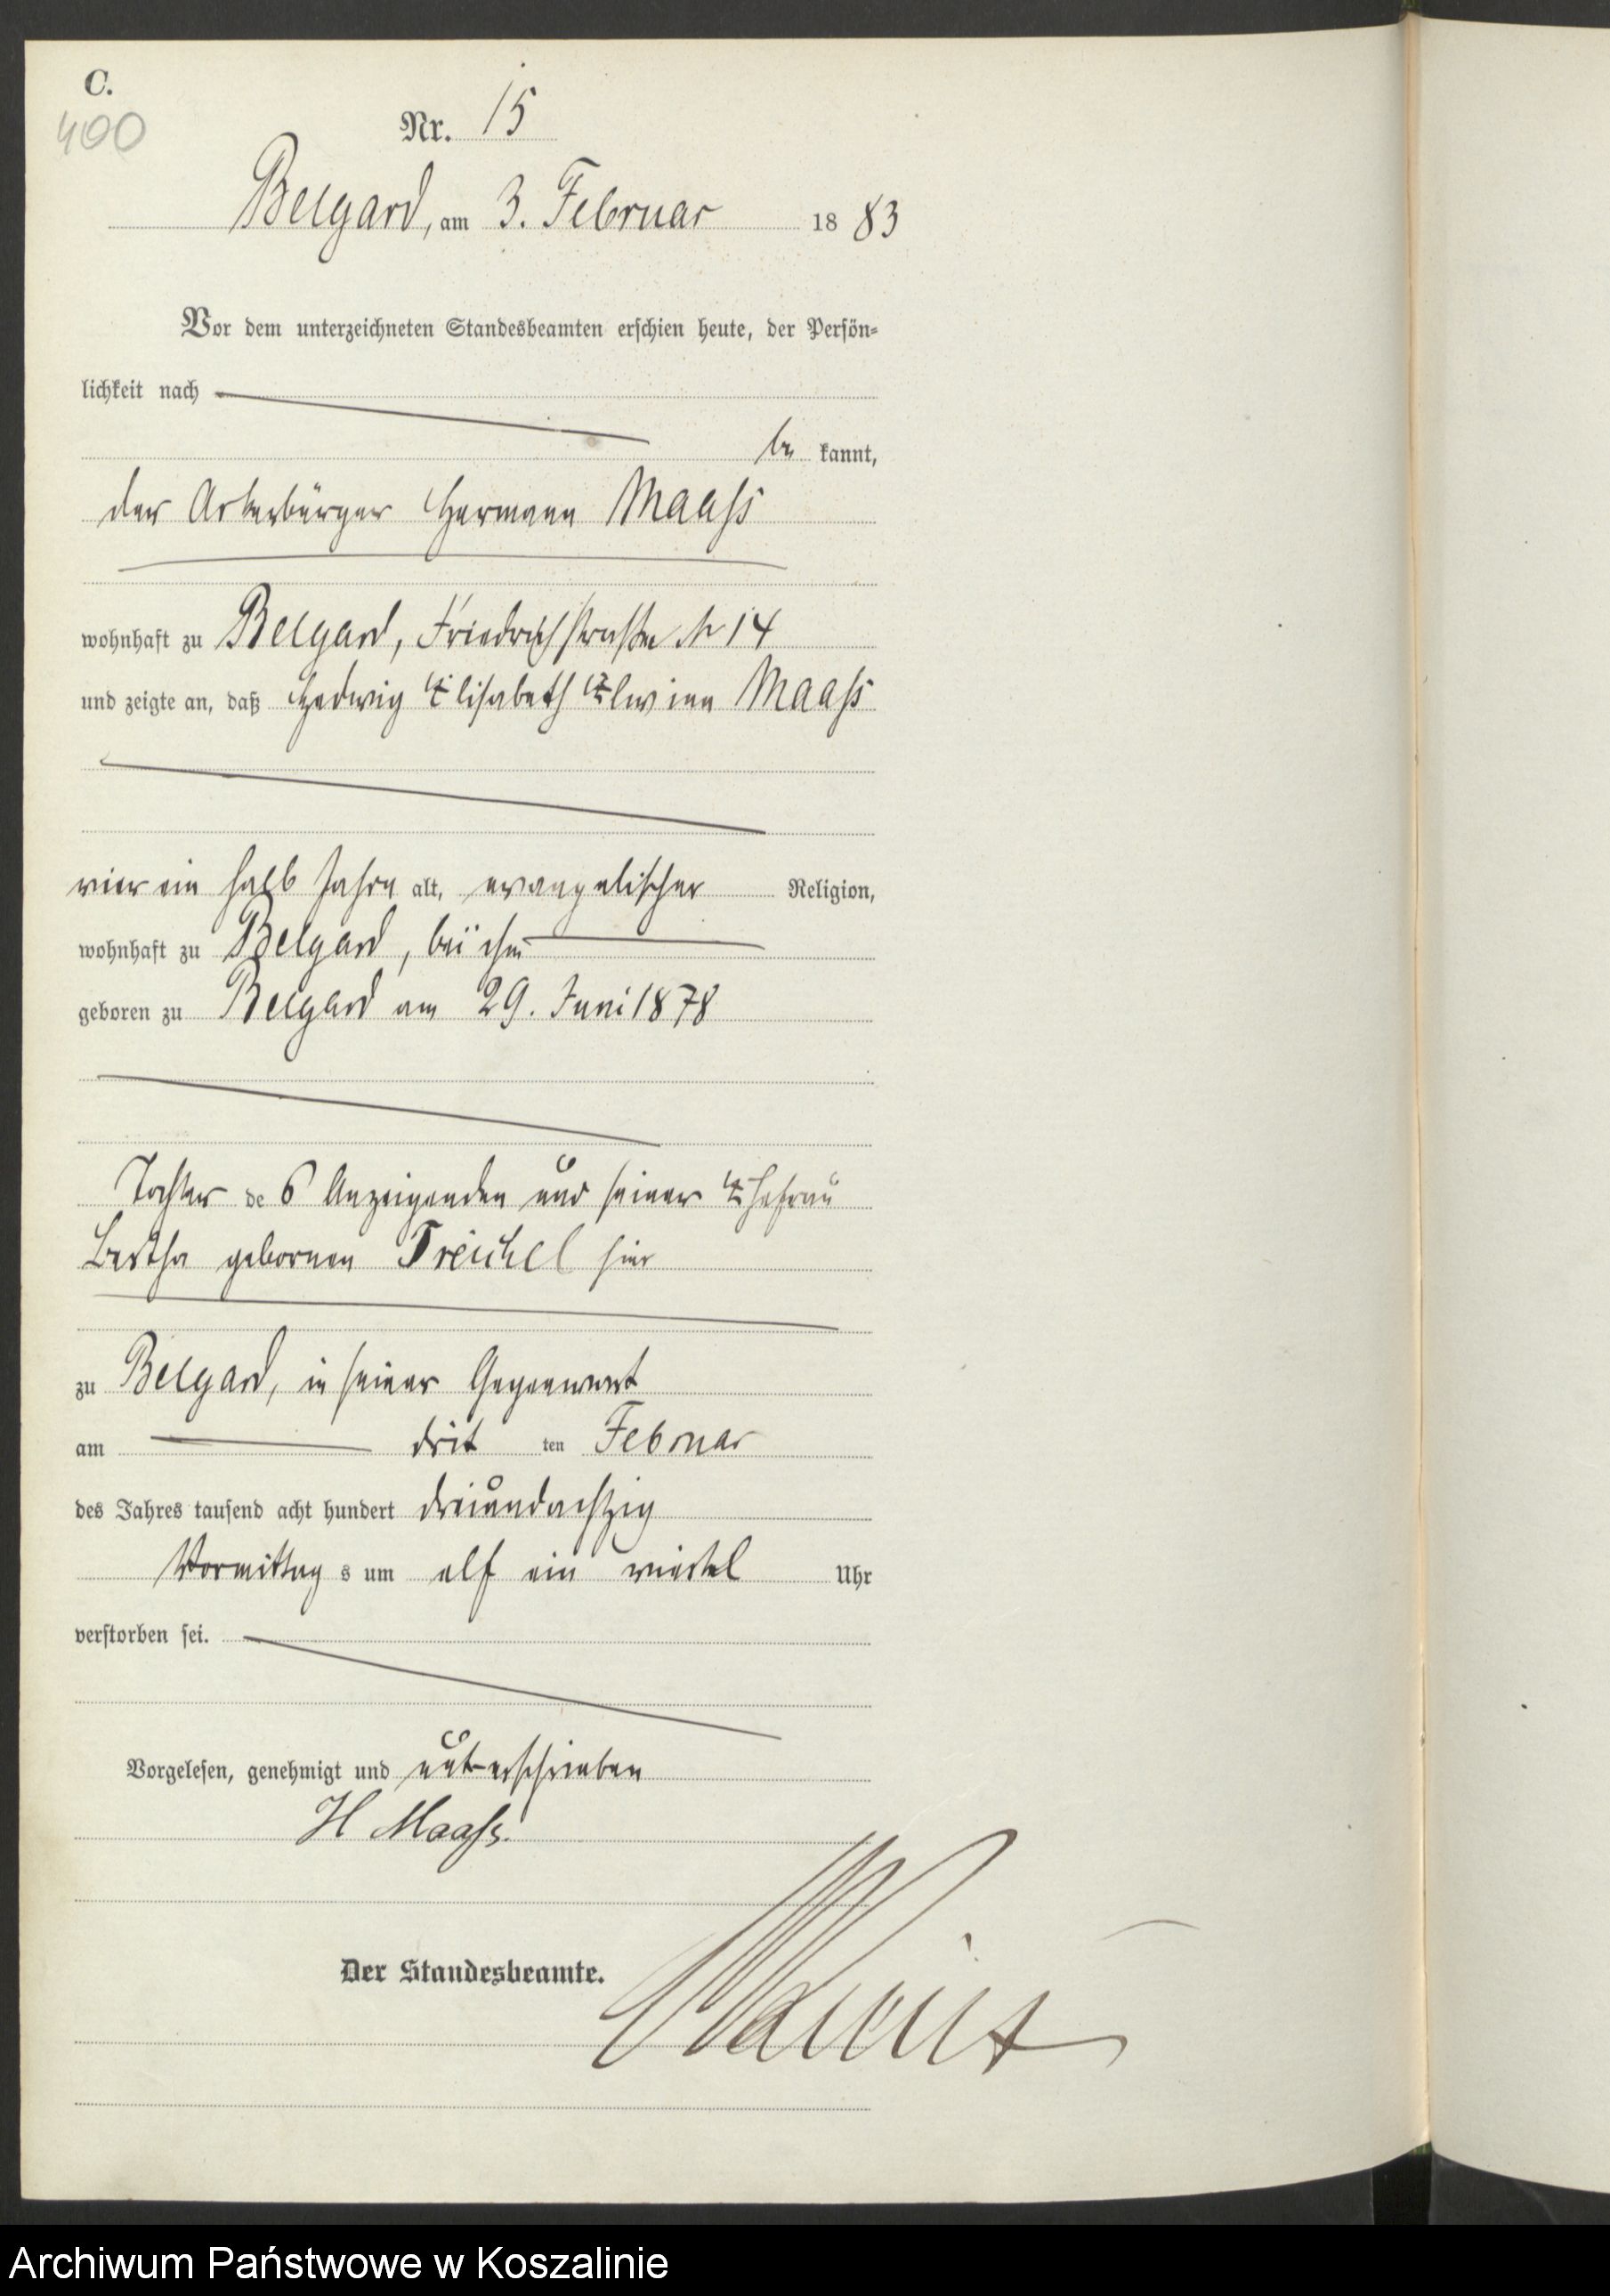 C.
400
Nr. 15
Belgard, am 3. Februar 1883
Vor dem unterzeichneten Standesbeamten erschien heute, der Persön-
lichkeit nach
be kannt,
der Ackerbürger Hermann Maaß
wohnhaft zu Belgard, Friedrichstraße № 14
und zeigte an, daß Hedwig Elisabeth Elwine Maaß
vier ein halb Jahre alt, evangelischer Religion,
wohnhaft zu Belgard, bei ihm
geboren zu Belgard am 29. Juni 1878
Tochter des Anzeigenden und seiner Ehefrau
Bertha gebornen Treichel hier
zu Belgard, in seiner Gegenwart
am dritten Februar
des Jahres tausend acht hundert dreiundachtzig
Vormittags um elf ein viertel Uhr
verstorben sei.
Vorgelesen, genehmigt und unterschrieben
H Maaß.
Der Standesbeamte.
Archiwum Państwowe w Koszalinie